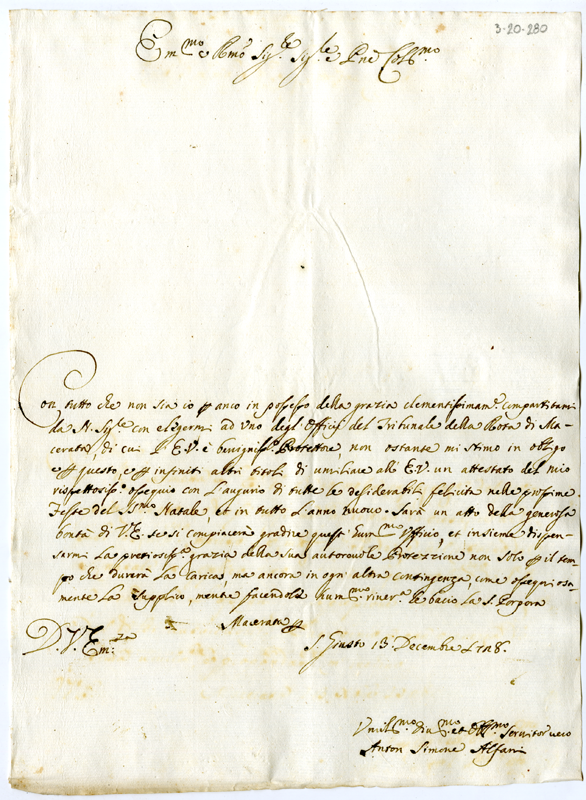 3-20-280
Em.mo e Rmo Sig.re Sig.re e Pne Col.mo
Con tutto che non sia io p anco in possesso della grazia clementissimam.e compartitami
da N. Sig.re con eleggermi ad uno degl' Officij del Tribunale della Rota di Ma-
cerata, di cui l' E.V. è benigniss.o Protettore, non ostante mi stimo in obligo
e p questo, e p infiniti altri titoli di umiliare all' E.V. un attestato del mio
rispettosiss.o ossequio con l'augurio di tutte le desiderabili felicità nelle prossime
Feste del SS.mo Natale, et in tutto l'anno nuovo. Sarà un atto della generosa
bontà di V.E. se si compiacerà gradire quest' hum.mo Ufficio, et insieme dispen-
sarmi la pretiosiss.a grazia della sua autorevole Protezzione non solo p il tem-
po che durerà la carica, ma ancora in ogni altra contingenza, come ossequiosa-
mente la supplico, mentre facendole hum.ma river.a le bacio la S. Porpora
D. V. Em.za
Macerata p
S. Giusto 13. Decembre 1718.
Umil.mo div.mo et Obl.mo Servitor vero
Anton Simone Alfani